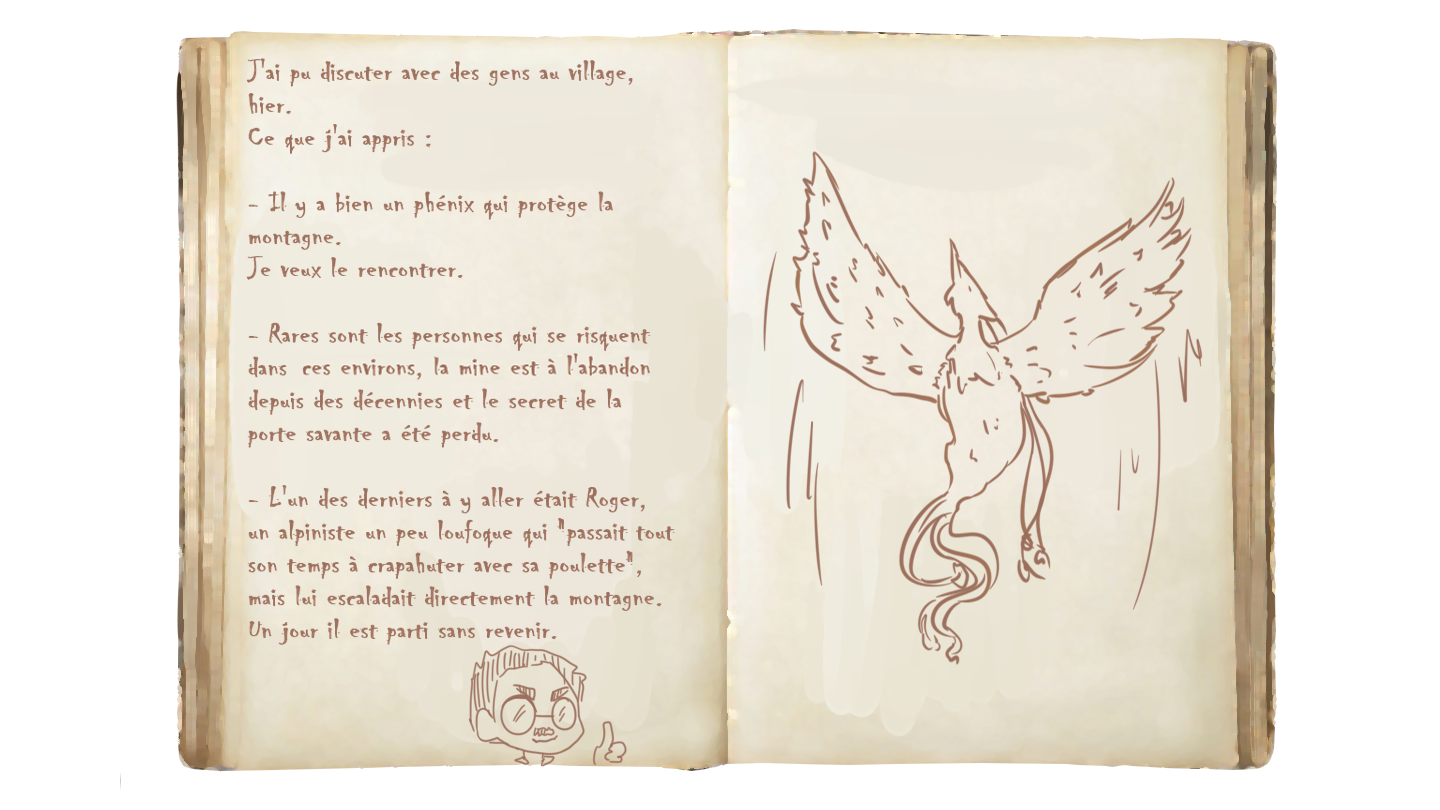 J'ai pu discuter avec des gens au village,
hier.
Ce que j'ai appris :
- Il y a bien un phénix qui protège la
montagne.
Je veux le rencontrer.
- Rares sont les personnes qui se risquent
dans ces environs, la mine est à l'abandon
depuis des décennies et le secret de la
porte savante a été perdu.
- L'un des derniers à y aller était Roger,
un alpiniste un peu loufoque qui "passait tout
son temps à crapahuter avec sa poulette",
mais lui escaladait directement la montagne.
Un jour il est parti sans revenir.